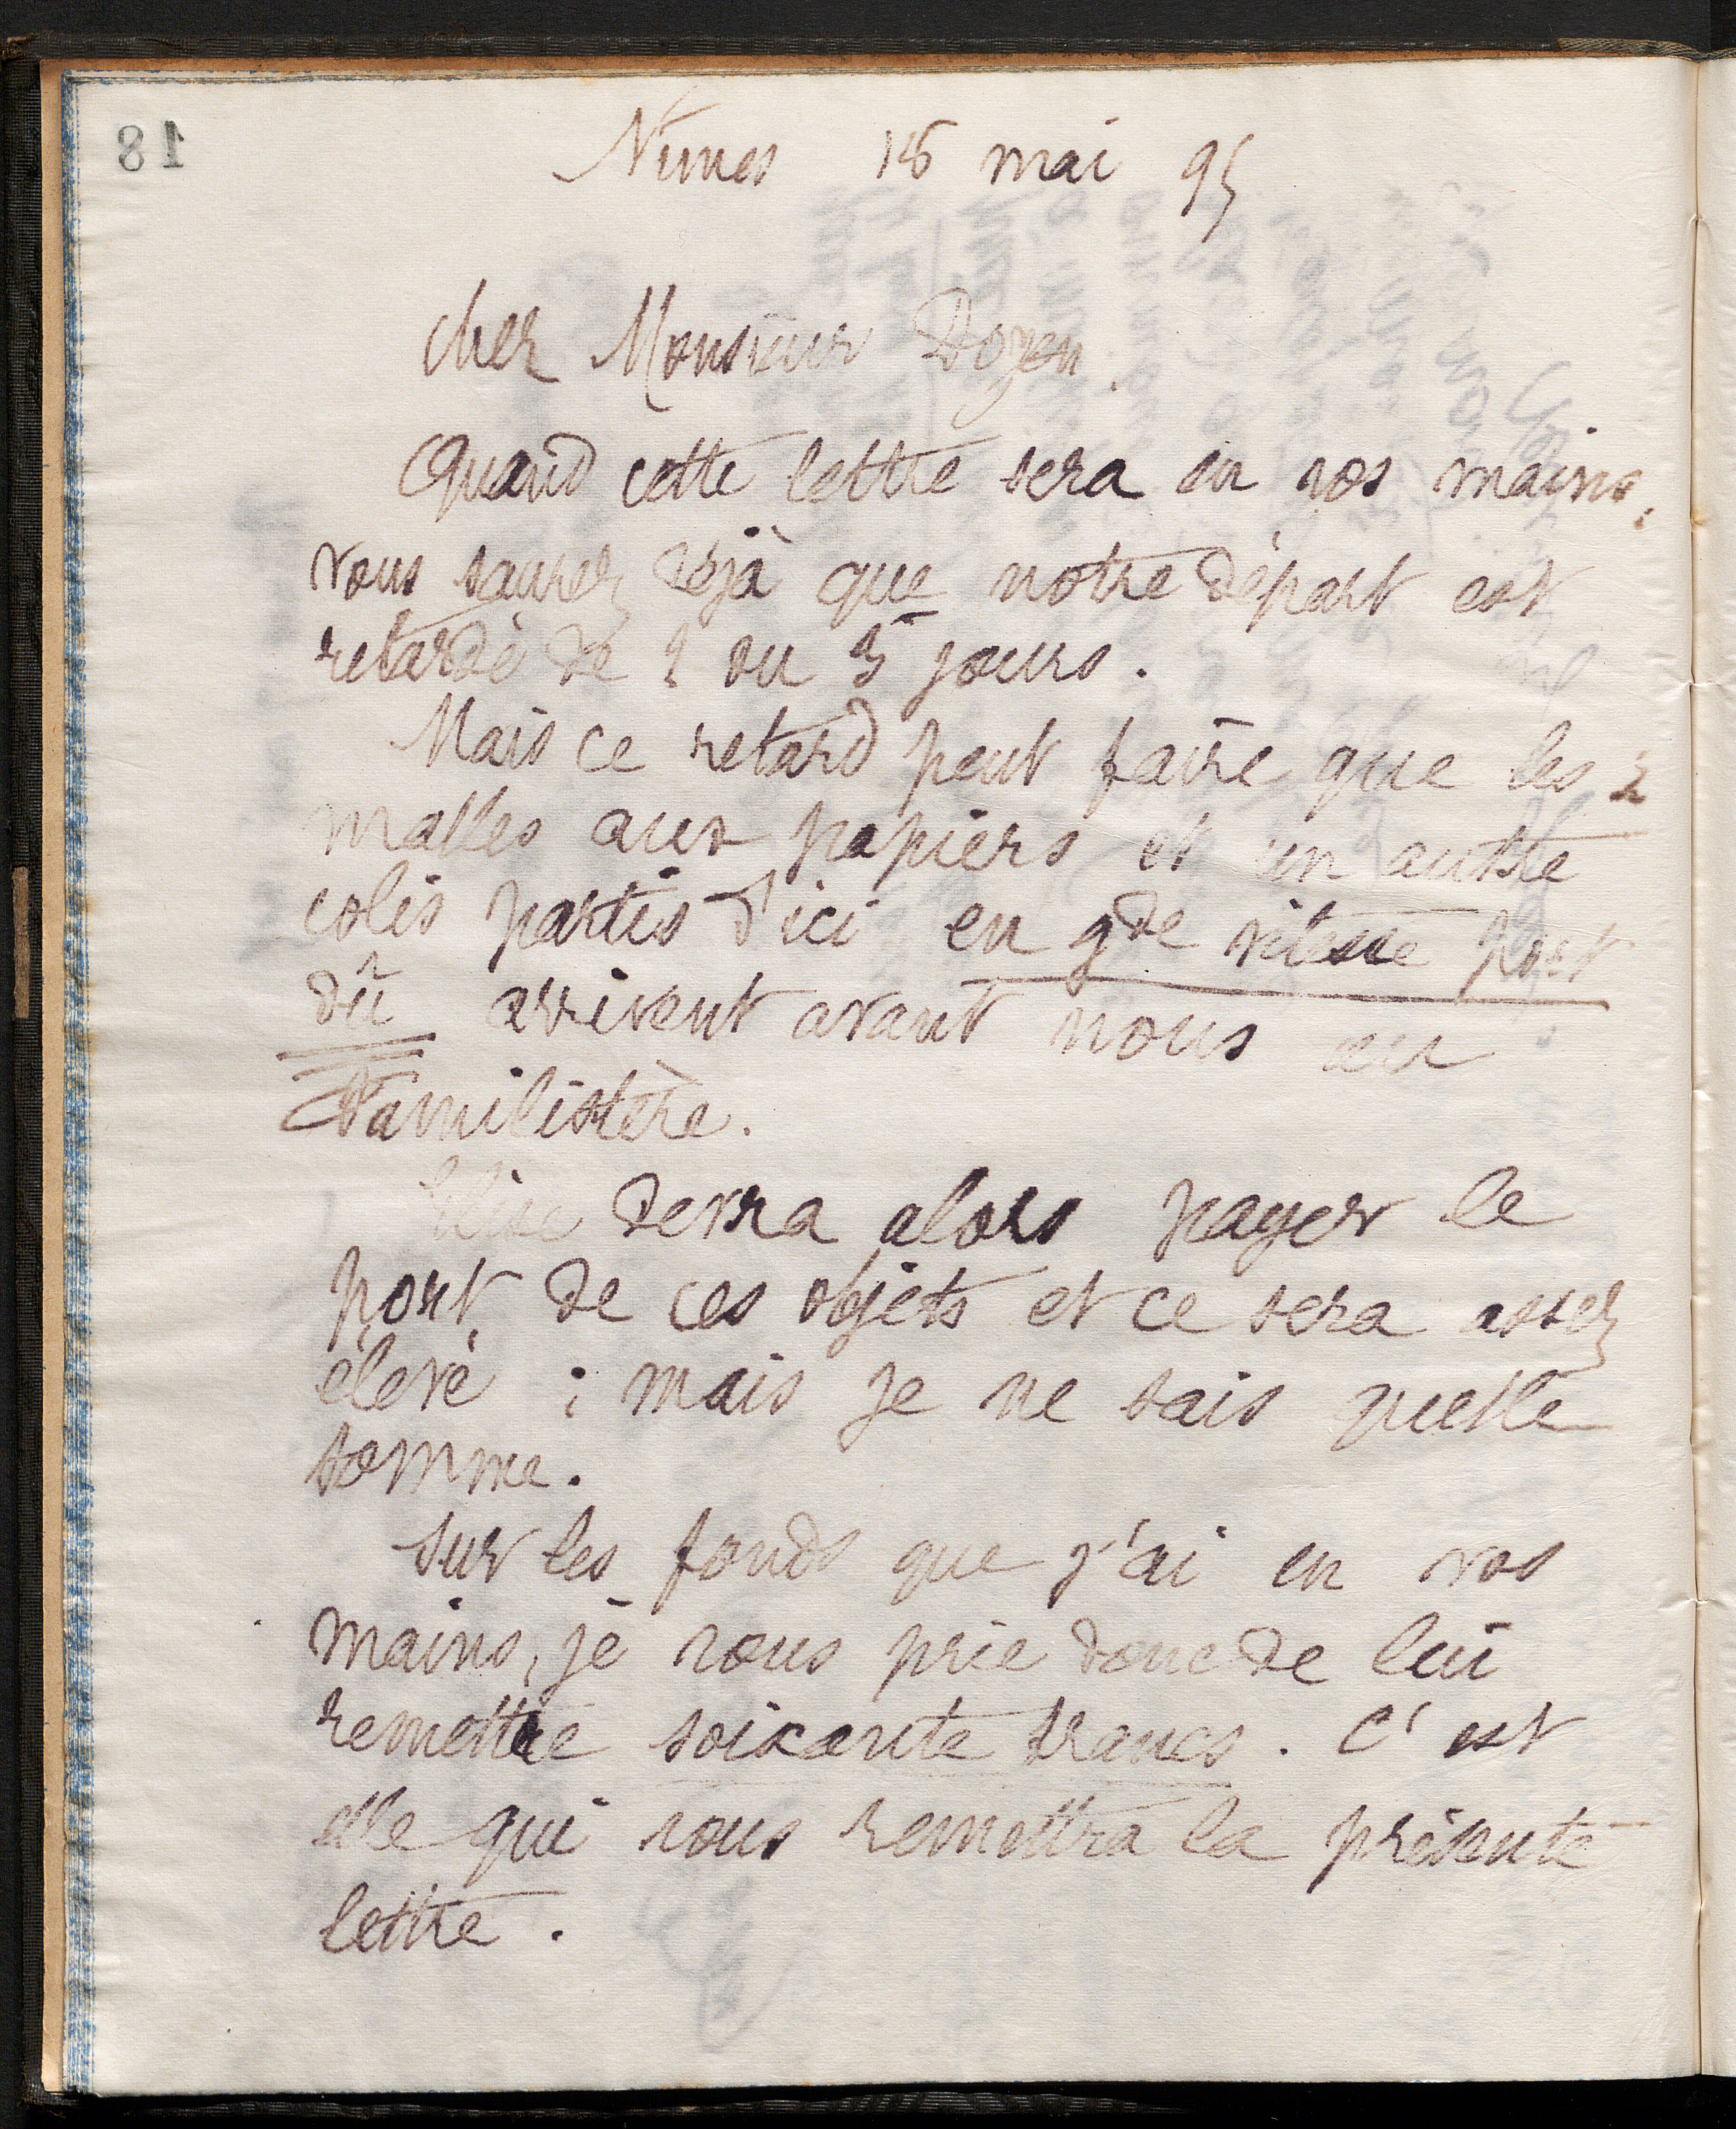 18
Nîmes 18 mai 95
Cher Monsieur Doyen.
Quand cette lettre sera en vos mains,
vous saurez déjà que notre départ est
retardé de 2 ou 3 jours.
Mais ce retard peut faire que les 2
malles aux papiers et un autre
colis partis d'ici en gde vitesse port
dû arrivent avant nous au
Familistère.
devra alors payer le
port de ces objets et ce sera assez
élevé ; mais je ne sais quelle
somme.
Sur les fonds que j'ai en vos
mains, je vous prie donc de lui
remettre soixante francs. C'est
elle qui vous remettra la présente
lettre.